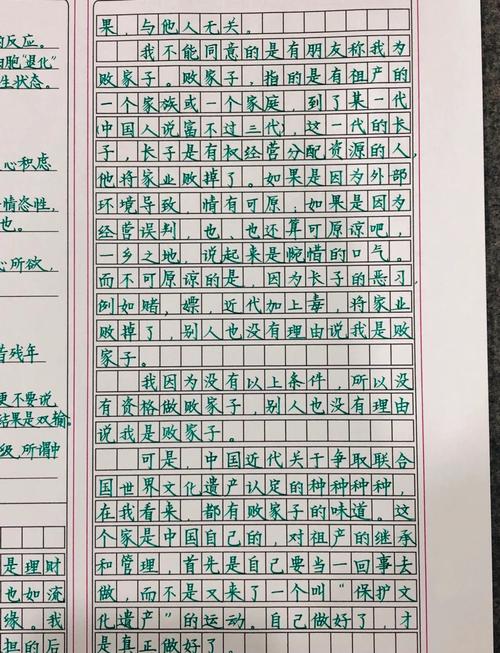 的反应。
细胞"退化"
生状态。
心积虑
情态性，
也。
心所欲，
首残年
更不要说
结果是双输。
级，所谓中
是理财
也如流
缘。我
担的后
果，与他人无关。
我不能同意的是有朋友称我为
败家子。败家子，指的是有祖产的
一个家族或一个家庭，到了某一代
（中国人说富不过三代），这一代的长
子，长子是有权经营分配资源的人，
他将家业败掉了。如果是因为外部
环境导致，情有可原；如果是因为
经营误判，也、也还算可原谅吧，
一乡之地，说起来是惋惜的口气。
而不可原谅的是，因为长子的恶习，
例如赌，嫖，近代加上毒，将家业
败掉了，别人也没有理由说我是败
家子。
我因为没有以上条件，所以没
有资格做败家子，别人也没有理由
说我是败家子。
可是，中国近代关于争取联合
国世界文化遗产认定的种种种种，
在我看来，都有败家子的味道。这
个家是中国自己的，对祖产的继承
和管理，首先是自己要当一回事去
做，而不是又来了一个叫"保护文
化遗产"的运动。自己做好了，才
是真正做好了。